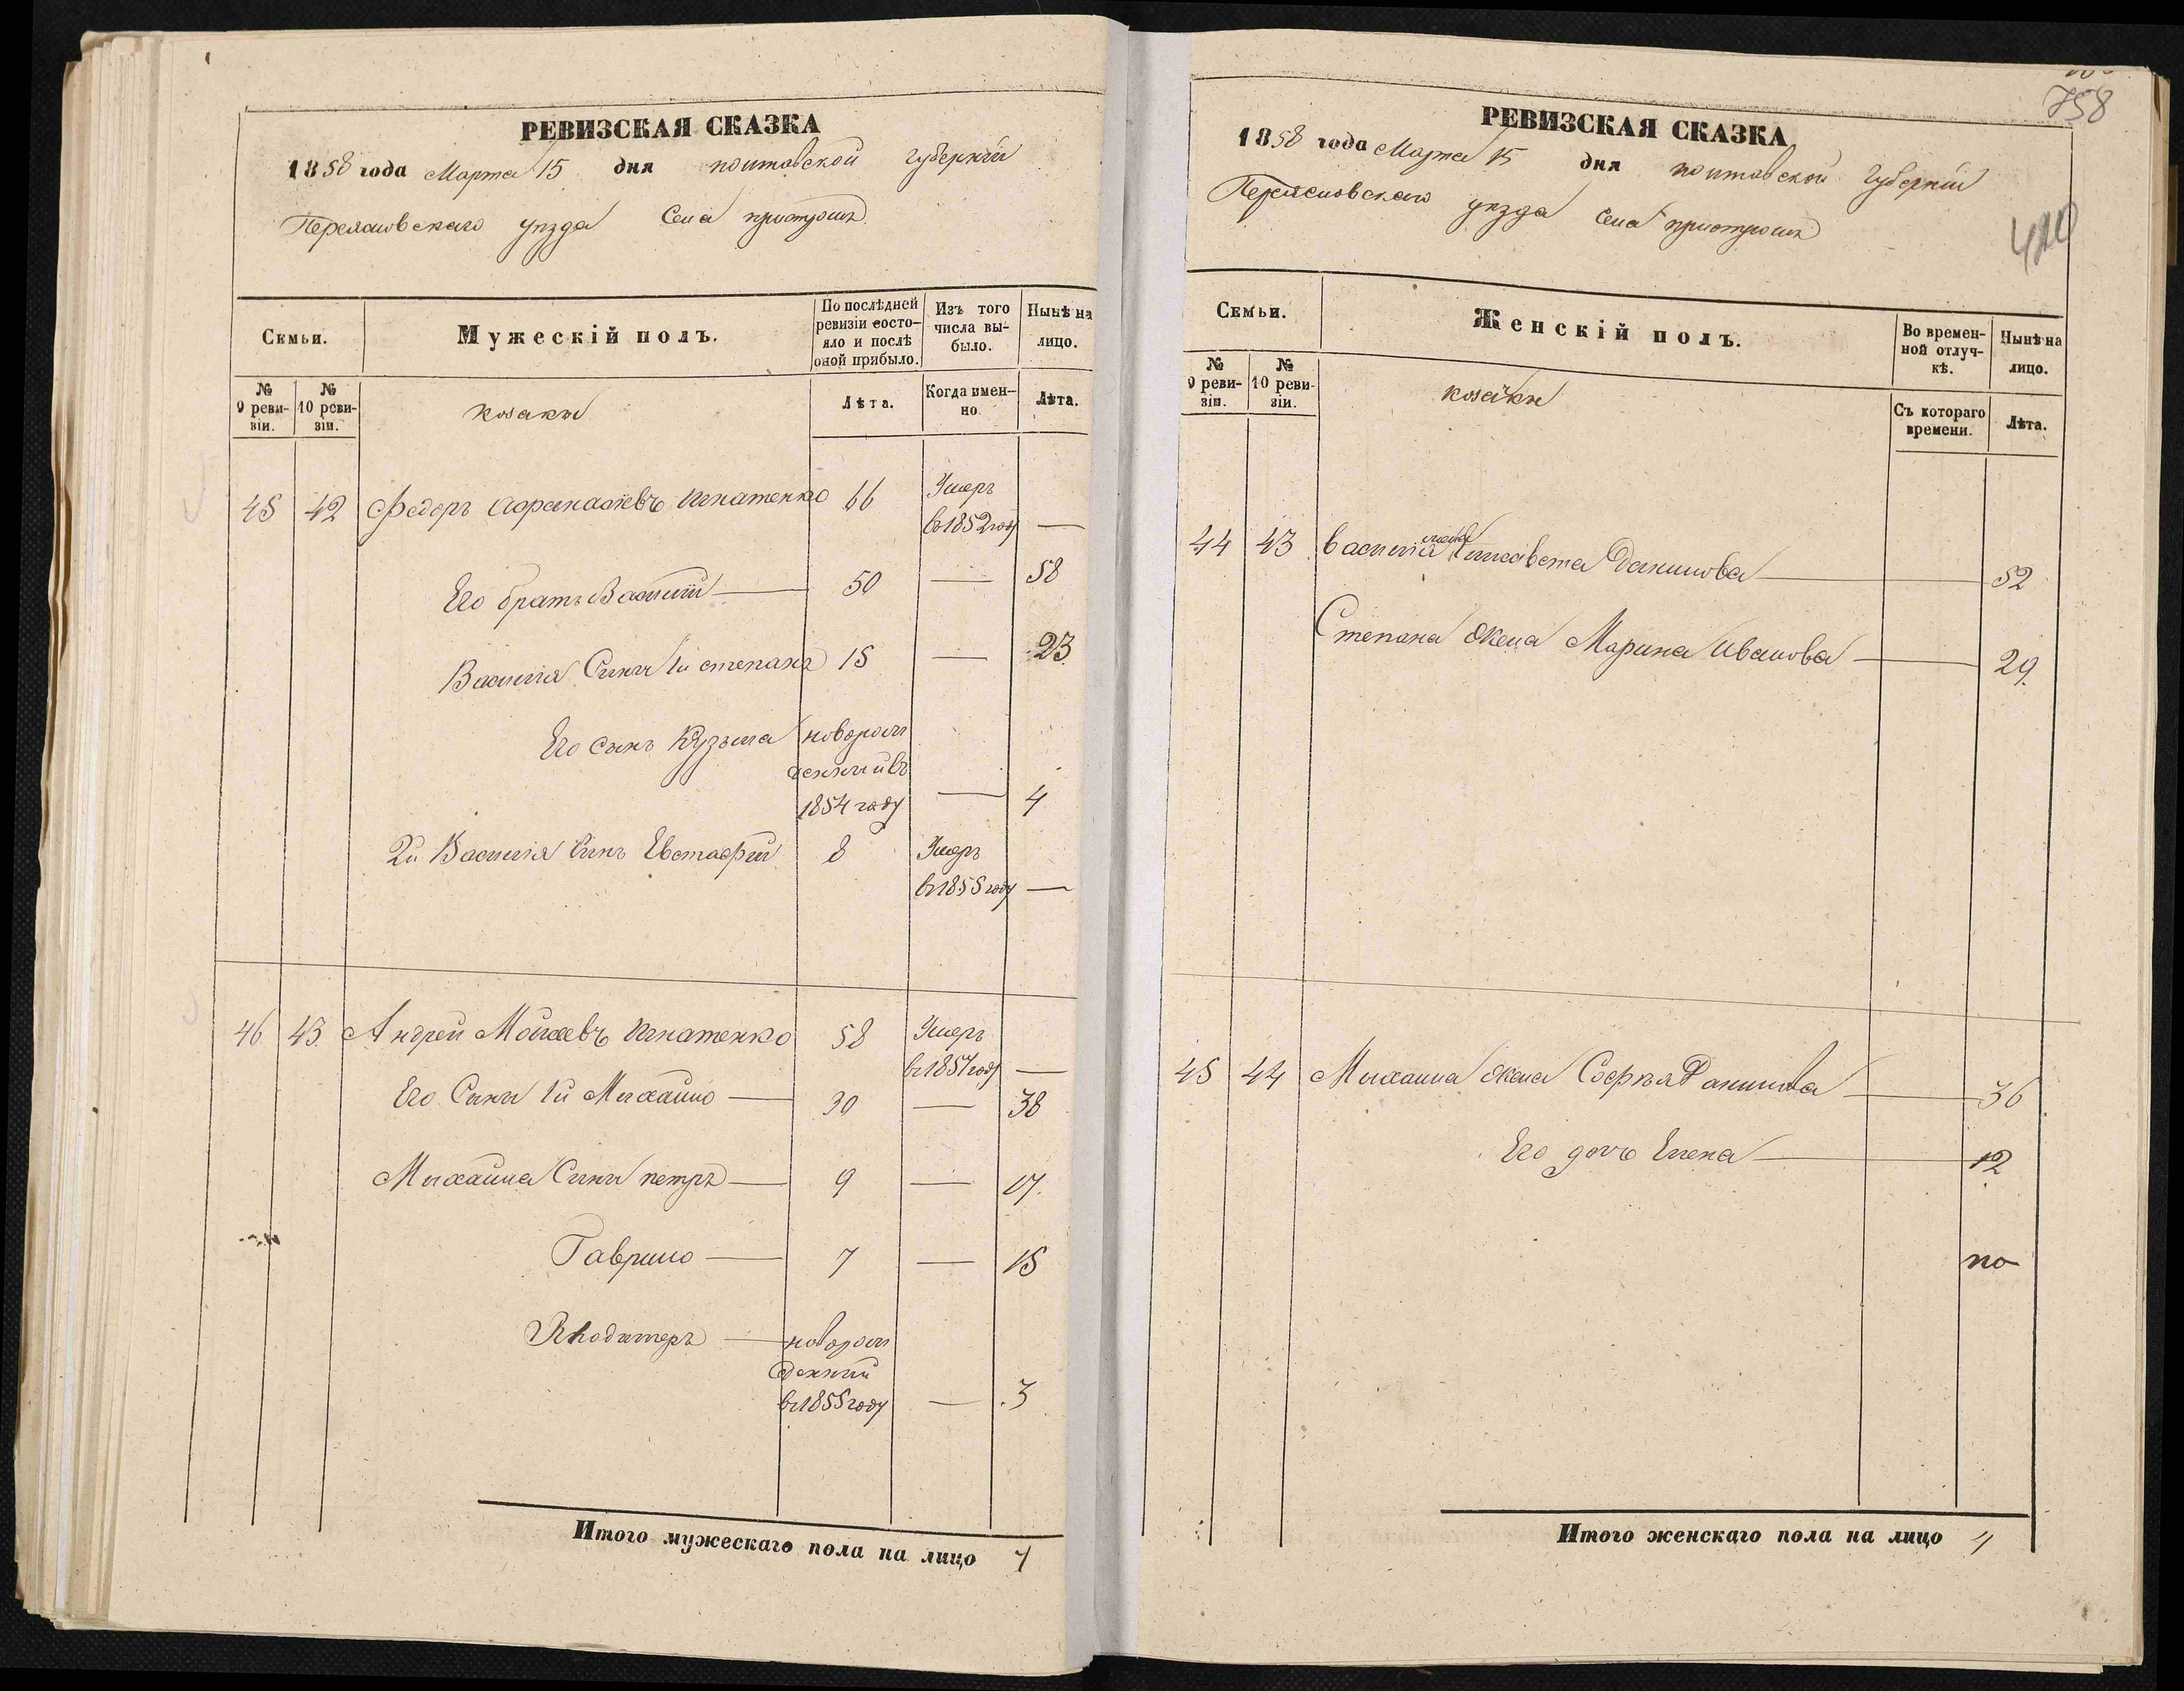 РЕВИЗСКАЯ СКАЗКА
1858 года Марта 15 дня полтавской Губерніи
Переяславскаго уезда Села пристромъ
Семьи.
Мужескій полъ.
По послѣдней ревизіи состояло и послѣ оной прибыло.
Изъ того числа выбыло.
Нынѣ на лицо.
№ 9 ревизіи.
№ 10 ревизіи.
козаки
Лѣта.
Когда именно.
Лѣта.
45 42 Федоръ Афанасіевъ Игнатенко 66 Умеръ в 1852 году —
Его братъ Василій — 50 — 58
Василія Сины 1й степанъ 15 — 23
Его сынъ Кузьма новорожденный въ 1854 году — 4
2й Василія Синъ Евстафій 8 Умеръ в 1855 году —
46 43 Андрей Моисеевъ Игнатенко 58 Умеръ в 1851 году —
Его Сыны 1й Михайло — 30 — 38
Михайла Сины петръ — 9 — 17.
Гаврило — 7 — 15
новорожденный в 1855 году — 3
Итого мужескаго пола на лицо 7
758
РЕВИЗСКАЯ СКАЗКА
1858 года Марта 15 дня полтавской Губерніи
Переяславскаго уезда Села пристромъ
Семьи.
Женскій полъ.
Во временной отлучкѣ.
Нынѣ на лицо.
№ 9 ревизіи.
№ 10 ревизіи.
козачки
Съ котораго времени.
Лѣта.
44 43 Василія жена Елисавета Данилова — 52
Степана жена Марина Иванова — 29.
45 44 Михаила жена Софья Данилова — 36
Его дочь Елена — 12
по
Итого женскаго пола на лицо 4